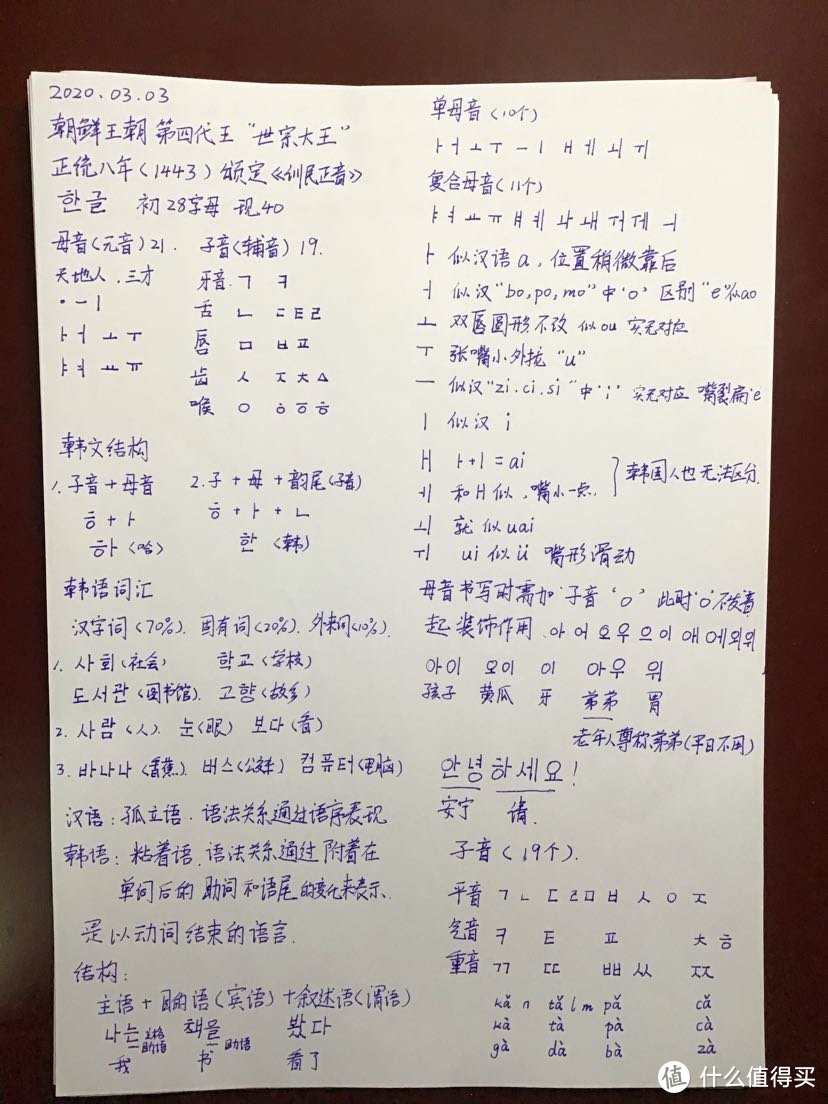 2020.03.03
朝鲜王朝 第四代王 "世宗大王"
正统八年(1443)颁定《训民正音》
한글 初28字母 现40
母音(元音)21. 子音(辅音)19.
天地人.三才
· ㅡ ㅣ
ㅏ ㅓ ㅗ ㅜ
ㅑ ㅕ ㅛ ㅠ
牙音.ㄱ ㅋ
舌 ㄴ ㄷㅌㄹ
唇 ㅁ ㅂㅍ
齿 ㅅ ㅈㅊㅿ
喉 ㅇ ㆁㆆㅎ
韩文结构
1. 子音+母音
ㅎ+ㅏ
하 (哈)
2.子+母+韵尾(子音)
ㅎ+ㅏ+ㄴ
한 (韩)
韩语词汇
汉字词(70%). 固有词(20%). 外来词(10%).
1. 사회(社会) 학교(学校)
도서관(图书馆). 고향(故乡)
2. 사람(人). 눈(眼) 보다(看)
3. 바나나(香蕉). 버스(公交车) 컴퓨터(电脑)
汉语:孤立语.语法关系通过语序表现
韩语:粘着语.语法关系通过附着在
单词后的助词和语尾的变化来表示.
是以动词结束的语言.
结构:
主语+目的语(宾语)+叙述语(谓语)
나는 主格助词 책을 助词 봤다
我 书 看了
单母音(10个)
ㅏ ㅓ ㅗ ㅜ ㅡ ㅣ ㅐ ㅔ ㅚ ㅟ
复合母音(11个)
ㅑ ㅕ ㅛ ㅠ ㅒ ㅖ ㅘ ㅙ ㅝ ㅞ ㅢ
ㅏ 似汉语a,位置稍微靠后
ㅓ 似汉"bo,po,mo"中'o' 区别"e"似ao
ㅗ 双唇圆形不改 似ou 实无对应
ㅜ 张嘴小外拢"u"
ㅡ 似汉"zi.ci.si"中'i' 实无对应 嘴裂扁'e
ㅣ 似汉 i
ㅐ ㅏ+ㅣ=ai
ㅔ 和ㅐ似,嘴小一点.
} 韩国人也无法区分.
ㅚ 就似uai
ㅟ ui 似ü 嘴形滑动
母音书写时需加 子音'ㅇ' 此时'ㅇ'不发音
起装饰作用.아 어 오 우 으 이 애 에 외 위
아이 오이 이 아우 위
孩子 黄瓜 牙 弟弟 胃
老年人尊称弟弟(平日不用)
안녕하세요!
安宁 请.
子音(19个).
平音 ㄱㄴ ㄷㄹㅁ ㅂ ㅅ ㅇ ㅈ
气音 ㅋ ㅌ ㅍ ㅊ ㅎ
重音 ㄲ ㄸ ㅃ ㅆ ㅉ
kǎ n tǎ l m pǎ cǎ
kà tà pà cà
gà dà bà zà
值 什么值得买